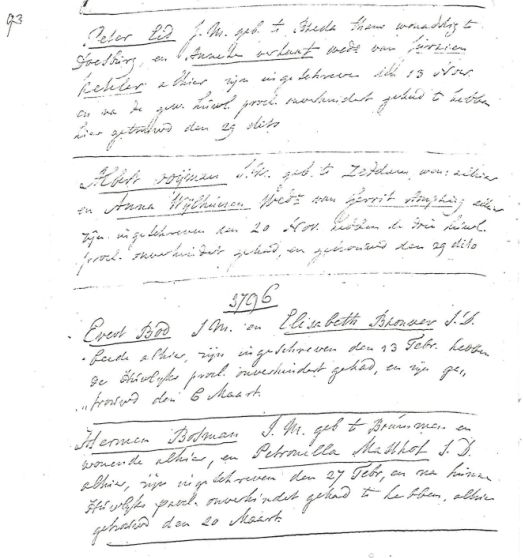 93
Peter Eid J.M. geb. te Breda thans woonachtig te
Doesburg, en Anneke verhaat wedᵉ van Jurrien
Kehler alhier zijn ingeschreven den 13 Nov.
en na de gew. huwl. procl. onverhindert gehad te hebben
hier getrouwd den 29 dito
Albert J.M. geb. te Zeddam, won. alhier
en Anna Wedᵉ van Gerrit alhier
zijn ingeschreven den 20 Nov. hebben de drie huwl.
procl. onverhindert gehad, en getrouwd den 29 dito
1796
Evert Bod J.M. en Elisabeth Brouwer J.D.
beide alhier, zijn ingeschreven den 13 Febr. hebben
de Huwlijks procl. onverhindert gehad, en zijn ge„
„trouwd den 6 Maart.
Herman Bosman J.M. geb te Brummen en
wonende alhier, en Petronella Madhof J.D.
alhier, zijn ingeschreven den 27 Febr, en na hunne
Huwlijks procl. onverhindert gehad te hebben, alhier
getrouwd den 20 Maart.